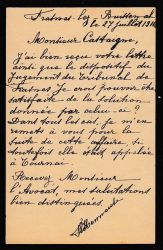 Frasnes lez Buissenal
le 27 juillet 1910
Monsieur Cattaigne,
J'ai bien reçu votre lettre
ainsi que le dispositif du
jugement du Tribunal de
Frasnes. Je crois pouvoir être
satisfaite de la solution
donnée par celui-ci ?
Dans tout les cas, je m'en
remets à vous pour la
suite de cette affaire, si
toutefois elle était appelée
à Tournai.
Recevez, Monsieur
l'Avocat, mes salutations
bien distinguées.